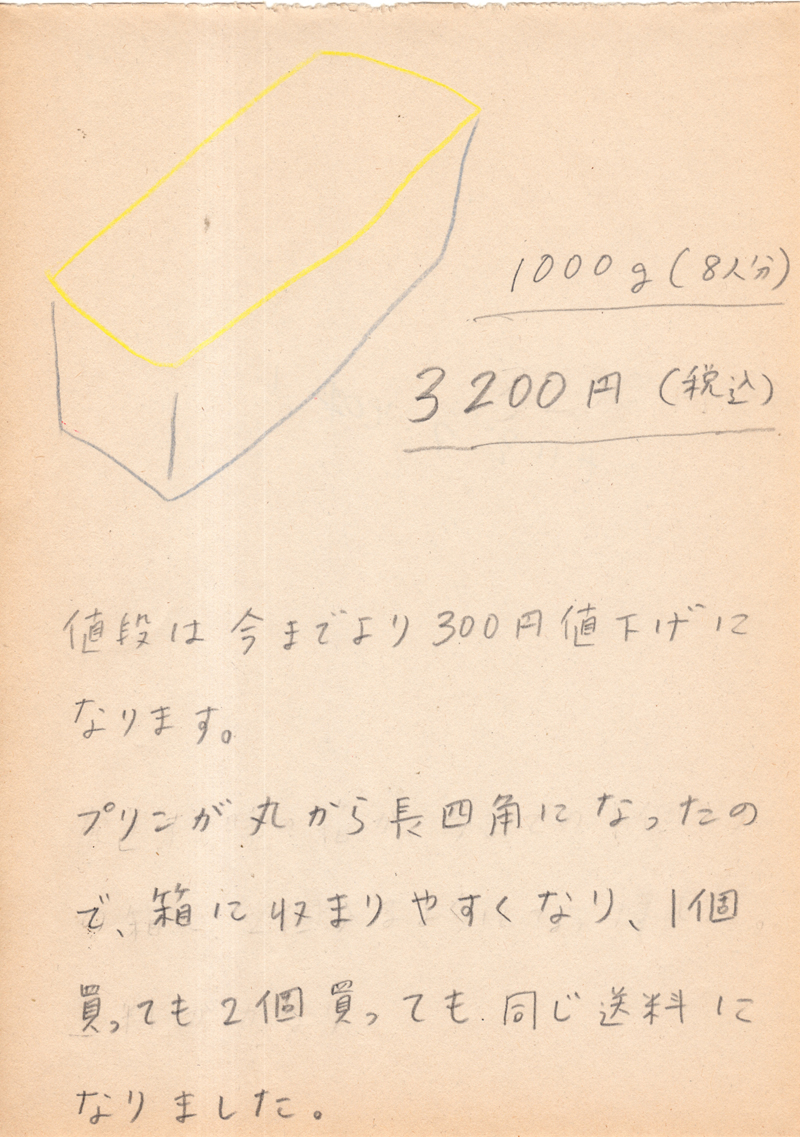 1000g(8人分)
3200円(税込)
値段は今までより300円値下げに
なります。
プリンが丸から長四角になったの
で、箱に収まりやすくなり、1個
買っても2個買っても同じ送料に
なりました。